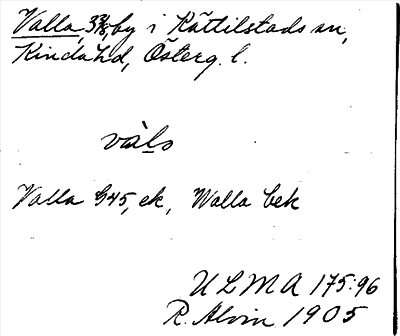 Valla, 3 3/8, by i Kättilstads sn,
Kinda hd, Österg. l.
vàls
Valla 1345, ek, Walla bek
ULMA 175:96
R. Alvin 1905